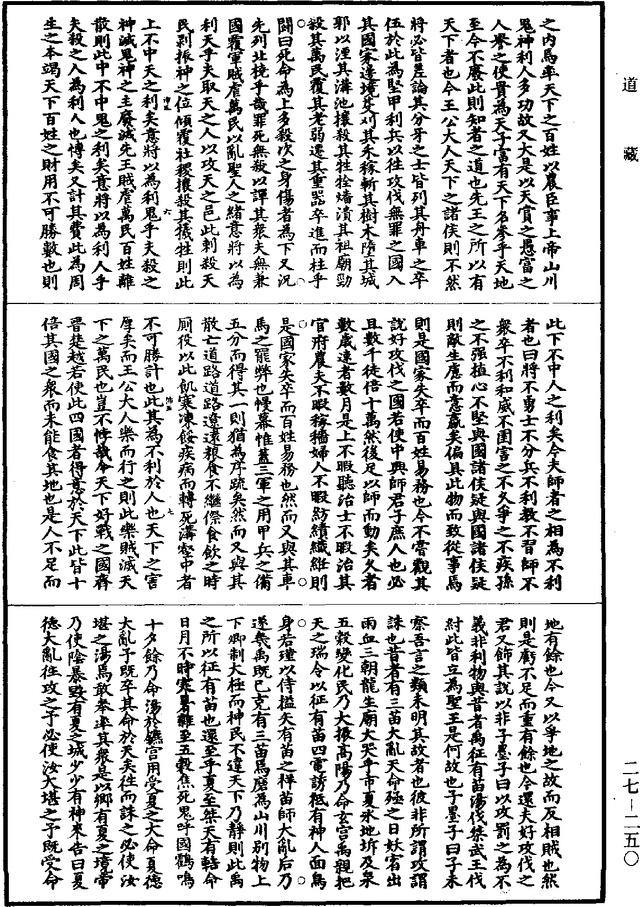 道藏
之內焉率天下之百姓以農臣事上帝山川
鬼神利人多功故又大是以天賞之愚富之
人譽之使貴為天子富有天下名參乎天地
至今不廢此則知者之道也先王之所以有
天下者也今王公大人天下之諸侯則不然
將必皆差論其分牙之士皆列其舟車之卒
伍於此為堅甲利兵以往攻伐無罪之國入
其國家邊境芟刈其禾稼斬其樹木墮其城
郭以湮其溝池攘殺其牲牷燔潰其祖廟勁
殺其萬民覆其老弱遷其重器卒進而柱乎
鬬曰死命為上多殺次之身傷者為下又況
先列北橈乎哉罪死無殺以譂其衆夫無兼
國覆軍賊虐萬民以亂聖人之緒意將以為
利天乎夫取天之人以攻天之邑此刺殺天
民剥振神之位傾覆社稷攘殺其犧牲則此
上不中天之利矣意將以為利鬼乎夫殺之
神滅鬼神之主廢滅先王賊虐萬民百姓離
散則此中不中鬼之利矣意將以為利人乎
夫殺之人為利人也博矣又計其費此為周
生之本竭天下百姓之財用不可勝數也則
此下不中人之利矣今夫師者之相為不利
者也曰將不勇士不分兵不利教不習師不
衆卒不利和威不圉害之不久爭之不疾孫
之不强植心不堅與國諸侯疑與國諸侯疑
則敵生慮而意羸矣偏具此物而致從事焉
則是國家失卒而百姓易務也今不嘗觀其
說好攻伐之國若使中興師君子庶人也必
且數千徒倍十萬然後足以師而動矣久者
數歲速者數月是上不暇聽治士不暇治其
官府農夫不暇稼穡婦人不暇紡績織紝則
是國家失卒而百姓易務也然而又與其車
馬之罷弊也幔幕帷蓋三軍之用甲兵之備
五分而得其一則猶為序疏矣然而又與其
散亡道路道路遼遠粮食不繼傺食飲之時
厠役以此飢寒凍餒疾病而轉死溝壑中者
不可勝計也此其為不利於人也天下之害
厚矣而王公大人樂而行之則此樂賊滅天
下之萬民也豈不悖哉今天下好戰之國齊
晉楚越若使此四國者得意於天下此皆十
倍其國之衆而未能食其地也是人不足而
地有餘也今又以爭地之故而反相賊也然
則是虧不足而重有餘也今還夫好攻伐之
君又飾其說以非子墨子曰以攻罰之為不
義非利物與昔者禹征有苗湯伐桀武王伐
紂此皆立為聖王是何故也子墨子曰子未
察吾言之類未明其故者也彼非所謂攻謂
誅也昔者有三苗大亂天命殛之日妖宵出
雨血三朝龍生廟犬哭乎市夏氷地坼及泉
五穀變化民乃大振高陽乃命玄宮禹親把
天之瑞令以征有苗四電誘袛有神人面鳥
身若瑾以侍搤矢有苗之祥苗師大亂后乃
遂幾禹既已克有三苗焉磨為山川别物上
下卿制大極而神民不違天下乃靜則此禹
之所以征有苗也還至乎夏王桀天有轄命
日月不時寒暑雜至五穀焦死鬼呼國鸖鳴
十夕餘乃命湯於鑣宮用受夏之大命夏德
大亂予既卒其命於天矣徃而誅之必使汝
堪之湯焉敢奉率其衆是以鄉有夏之境帝
乃使陰暴毁有夏之城少少有神來告曰夏
德大亂徃攻之予必使汝大堪之予既受命
二七—二五〇